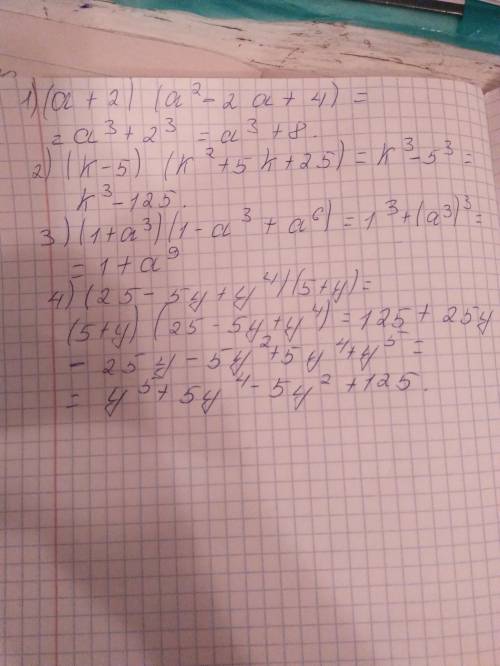 1) (a + 2) (a² - 2a + 4) =
= a³ + 2³ = a³ + 8.
2) (k - 5) (k² + 5k + 25) = k³ - 5³ =
k³ - 125.
3) (1 + a³) (1 - a³ + a⁶) = 1³ + (a³)³ =
= 1 + a⁹
4) (25 - 5y + y⁴) (5 + y) =
(5 + y) (25 - 5y + y⁴) = 125 + 25y
- 25y - 5y² + 5y⁴ + y⁵ =
= y⁵ + 5y⁴ - 5y² + 125.